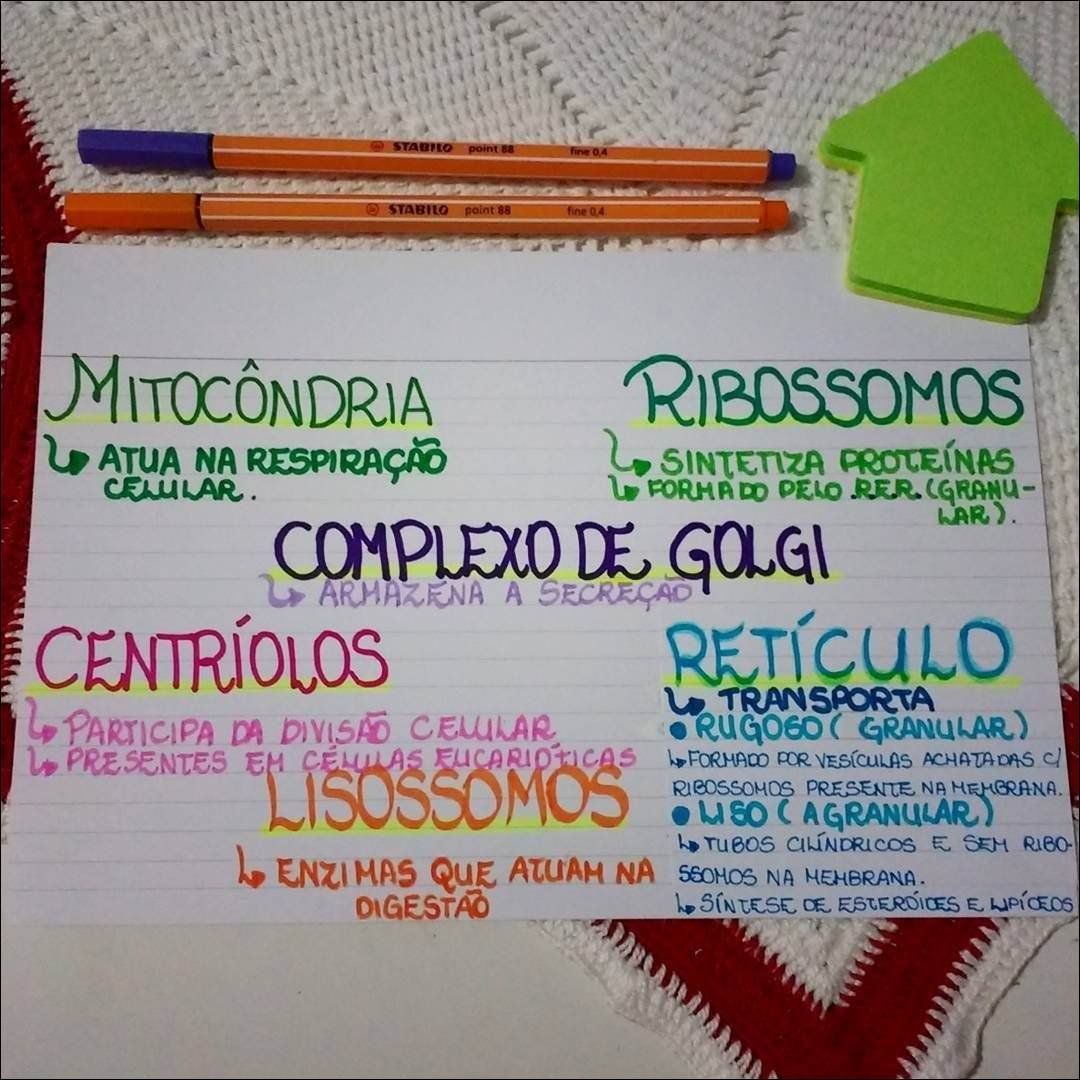 STABILO point 88 fine 0,4
STABILO point 88 fine 0,4
MITOCÔNDRIA
ATUA NA RESPIRAÇÃO
CELULAR.
RIBOSSOMOS
SINTETIZA PROTEÍNAS
FORMADO PELO R.E.R. (GRANU-
LAR).
COMPLEXO DE GOLGI
ARMAZENA A SECREÇÃO
CENTRÍOLOS
PARTICIPA DA DIVISÃO CELULAR
PRESENTES EM CÉLULAS EUCARIÓTICAS
LISOSSOMOS
ENZIMAS QUE ATUAM NA
DIGESTÃO
RETÍCULO
TRANSPORTA
• RUGOSO (GRANULAR)
FORMADO POR VESÍCULAS ACHATADAS C/
RIBOSSOMOS PRESENTE NA MEMBRANA.
• LISO (AGRANULAR)
TUBOS CILÍNDRICOS E SEM RIBO-
SSOMOS NA MEMBRANA.
SÍNTESE DE ESTERÓIDES E LIPÍDEOS